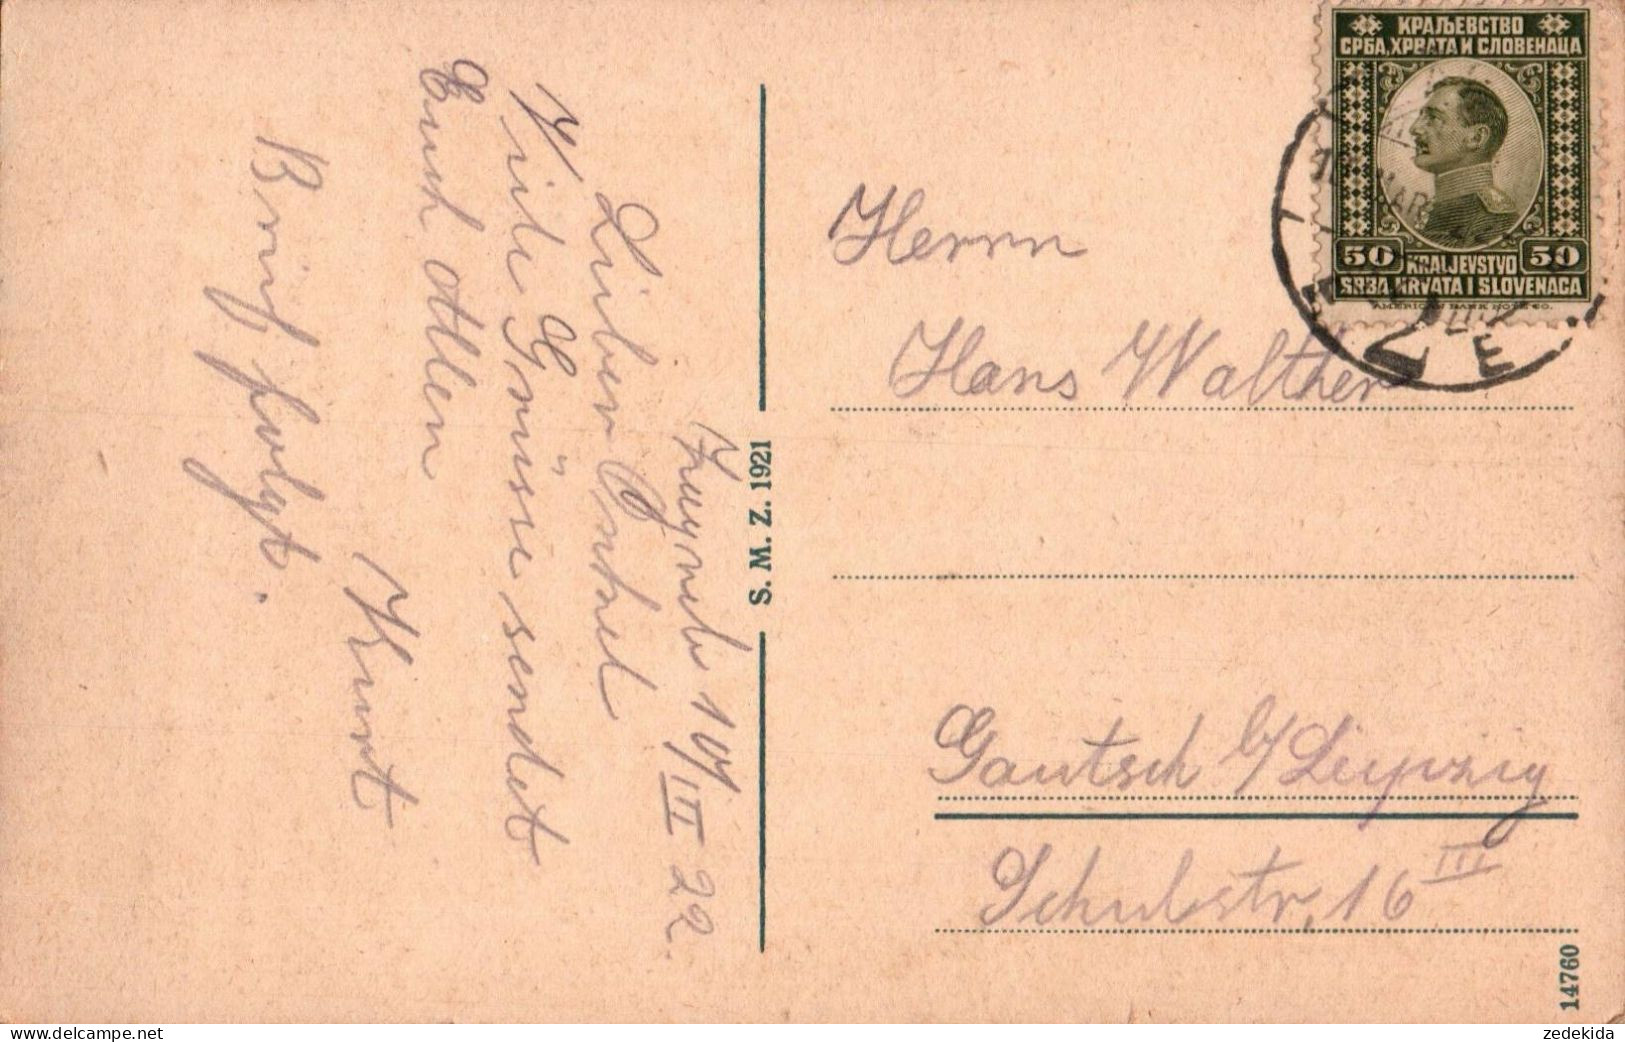 Zagreb 10/III 22.
Lieber Onkel
Viele Grüsse sendet
Euch Allen
Kurt
Brief folgt.
S. M. Z. 1921
КРАЉЕВСТВО
СРБА, ХРВАТА И СЛОВЕНАЦА
50 KRALJEVSTVO 50
SRBA, HRVATA I SLOVENACA
AMERICAN BANK NOTE CO.
Herrn
Hans Walther
Gautsch b/Leipzig
Schulstr, 16 III
14760
www.delcampe.net
zedekida